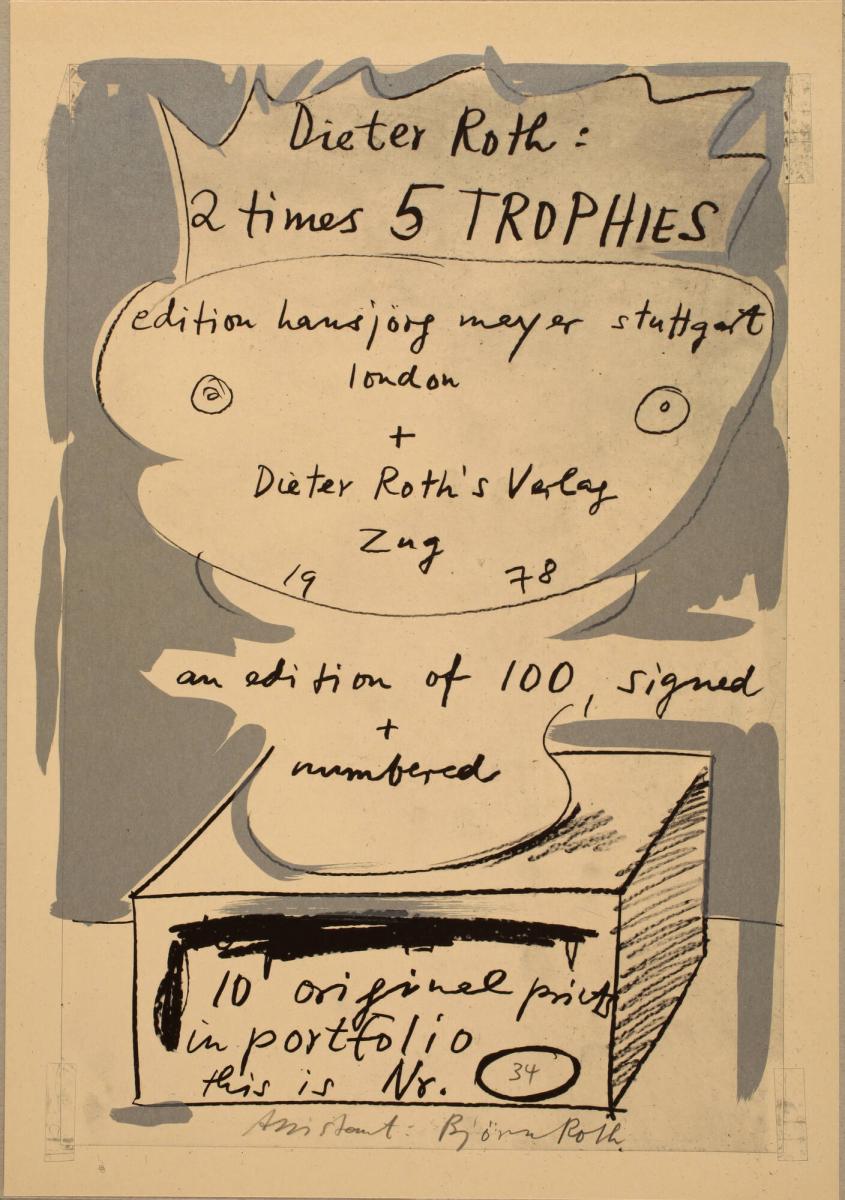 Dieter Roth:
2 times 5 TROPHIES
edition hansjörg mayer stuttgart
london
+
Dieter Roth's Verlag
Zug
19 78
an edition of 100, signed
+
numbered
10 original prints
in portfolio
this is Nr. 34
Assistant: Björn Roth